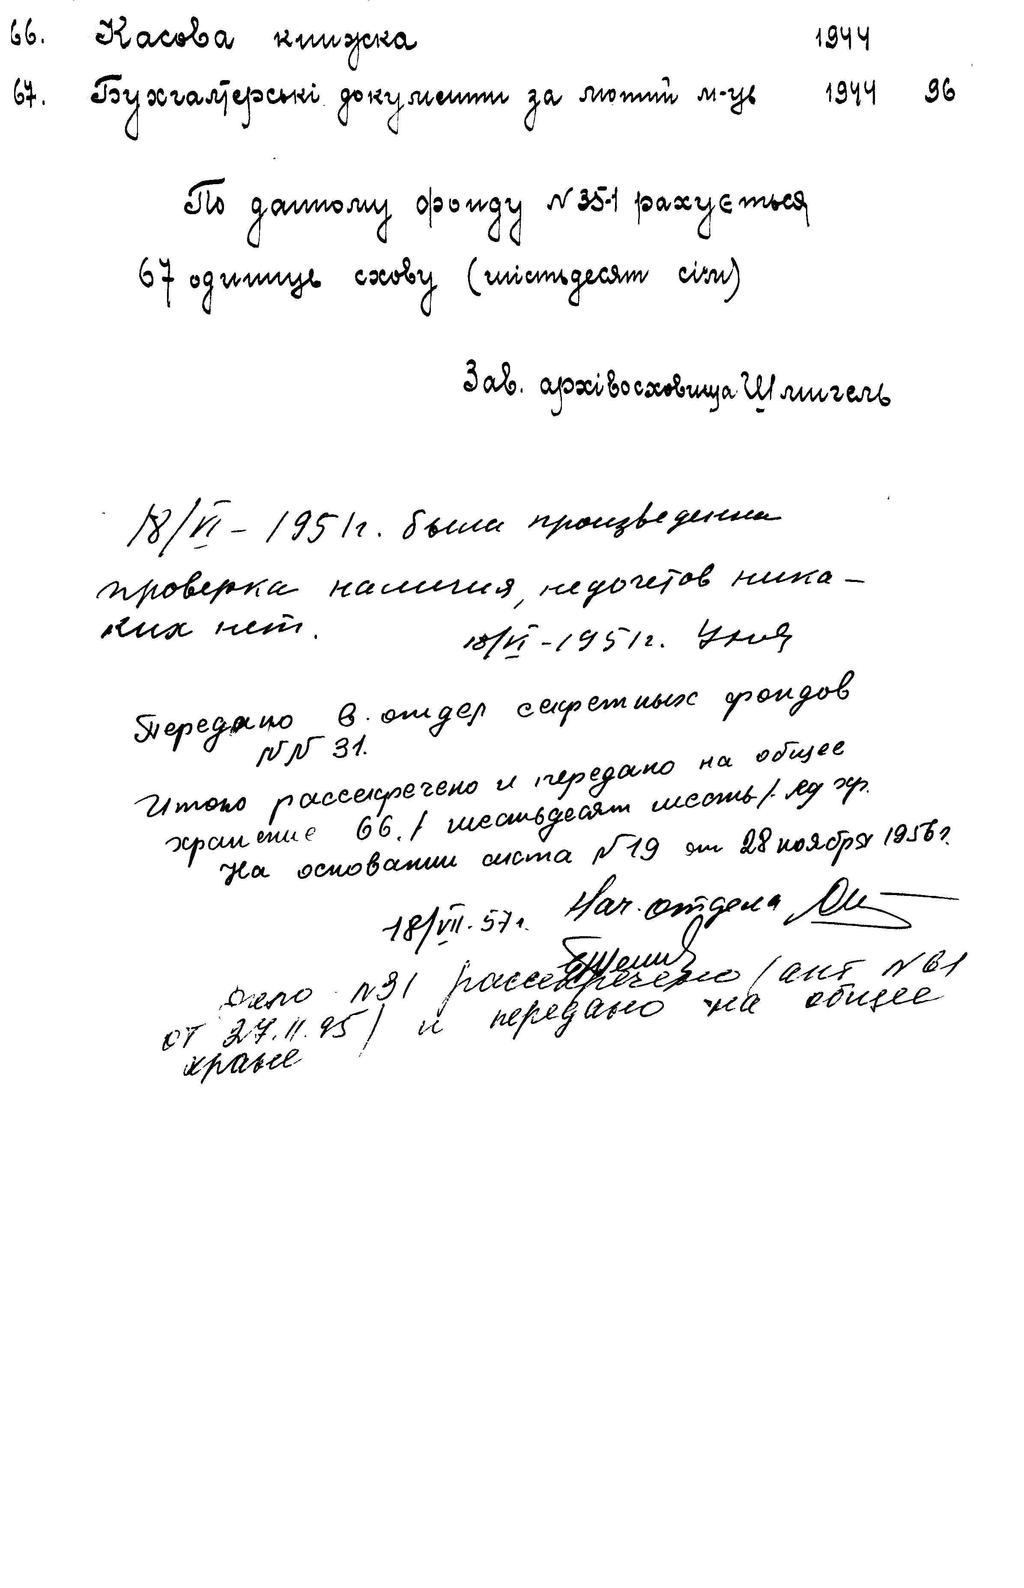 66. Касова книжка 1944
67. Бухгалтерські документи за лютий м-ць 1944 96
По данному фонду N 35-1 рахується
67 одиниць схову (шістьдесят сім)
Зав. архівосховища Шмигель
18/VI - 1951г. была произведенна
проверка наличия, недочетов ника-
ких нет.
18/VI - 1951г.
Передано в отдел секретных фондов
NN 31.
Итого рассекречено и передано на общее
хранение 66. / шестьдесят шесть /. ед хр.
На основании листа N 19 от 28 ноября 1956г.
18/VII. 57г. Нач. отдела
Дело N 31 рассекречено / акт N 61
от 27.11.95 / и передано на общее
хране